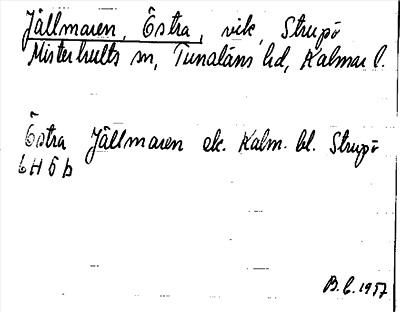 Jällmaren, Östra, vik, Strupö
Misterhults sn, Tunaläns hd, Kalmar l.
Östra Jällmaren ek. Kalm. bl. Strupö
6H6b
B.C. 1957